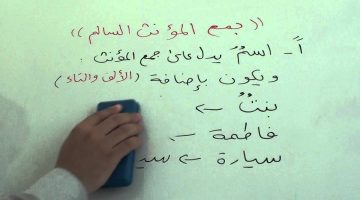 ((جمع المؤنث السالم))
أ- اسمٌ يدل على جمع المؤنث
ويكون بإضافة (الألف والتاء)
بنتٌ ←
فاطمة ←
سيارة ←